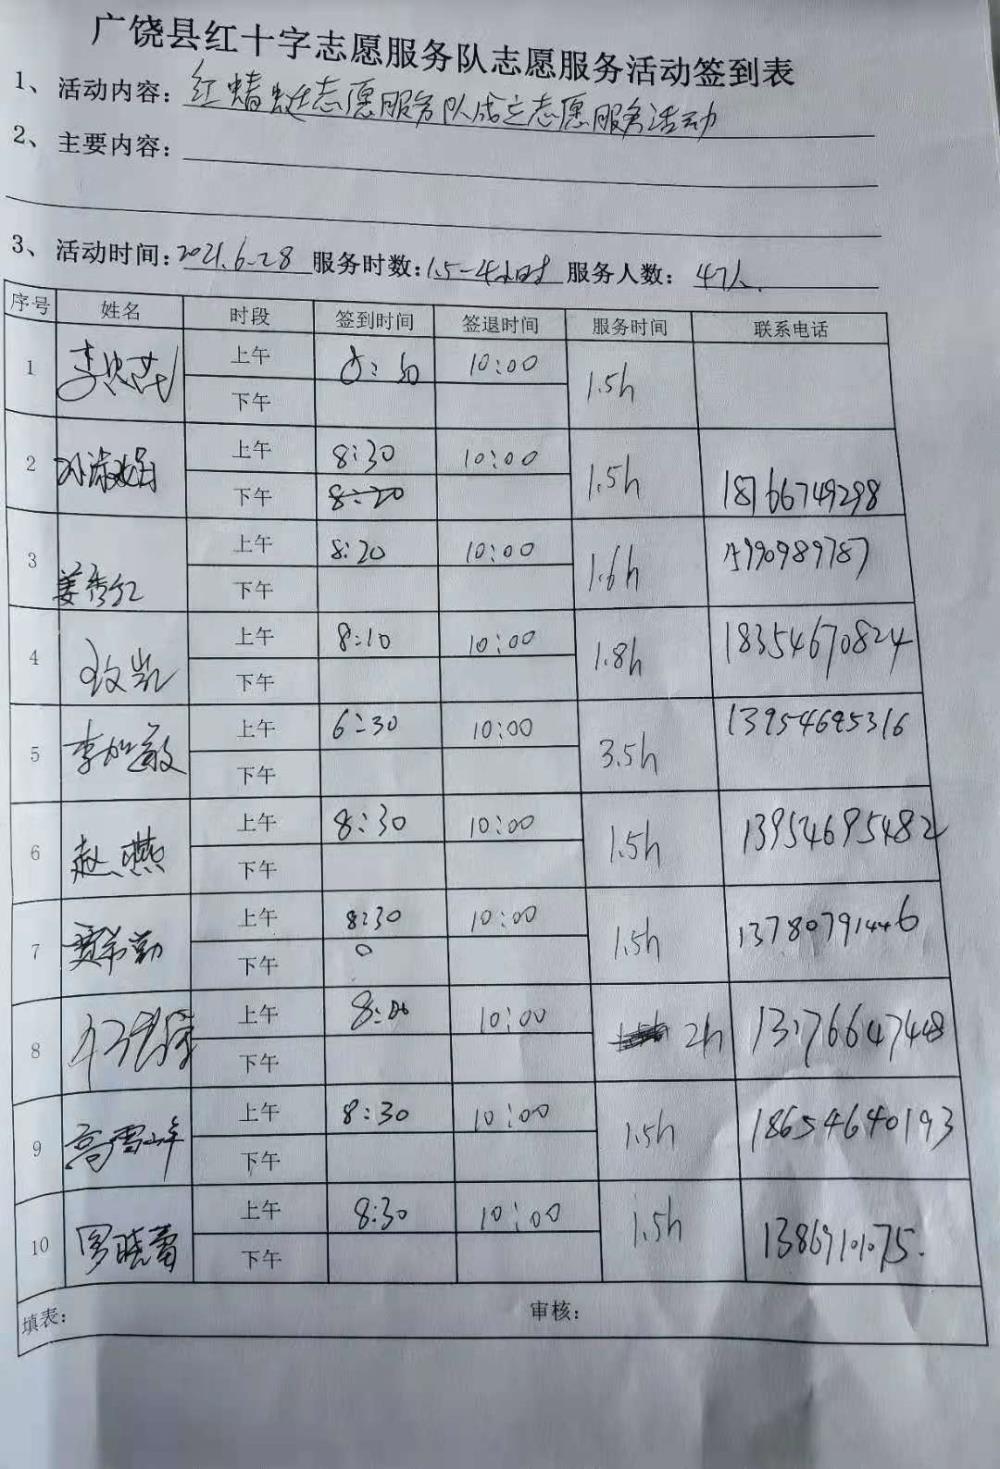 广饶县红十字志愿服务队志愿服务活动签到表
1、活动内容：红蜻蜓志愿服务队成立志愿服务活动
2、主要内容：
3、活动时间：2021.6-28 服务时数：1.5-4小时 服务人数：47人.
序号 姓名 时段 签到时间 签退时间 服务时间 联系电话
1 李忠花 上午 10:00 1.5h
下午
2 上午 8:30 10:00 1.5h 18766749298
下午 8:20
3 姜秀红 上午 8:20 10:00 1.6h
下午
4 上午 8:10 10:00 1.8h 18354670824
下午
5 李加敏 上午 6:30 10:00 3.5h 13954695316
下午
6 赵燕 上午 8:30 10:00 1.5h 13954695482
下午
7 上午 8:30 10:00 1.5h 13780791446
下午
8 上午 8:00 10:00 2h 13176647448
下午
9 高雪峰 上午 8:30 10:00 1.5h 18654640193
下午
10 罗晓蕾 上午 8:30 10:00 1.5h
下午
填表： 审核：